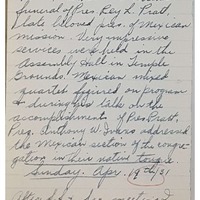 funeral of Pres Rey L. Pratt,
late beloved pres. of Mexican
mission. Very impressive
services were held in the
Assembly Hall in Temple
Grounds. Mexican mixed
quartet figured on program
& during talk on the
accomplishments of Pres Pratt,
Pres. Anthony W. Ivins addressed
the Mexican section of the congre-
gation in their native tongue.
Sunday, Apr. 19th/31